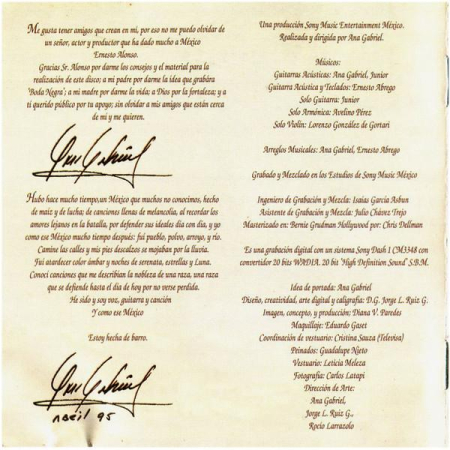 Me gusta tener amigos que crean en mí, por eso no me puedo olvidar de
un señor, actor y productor que ha dado mucho a México
Ernesto Alonso.
Gracias Sr. Alonso por darme los consejos y el material para la
realización de este disco; a mi padre por darme la idea que grabára
'Boda Negra'; a mi madre por darme la vida; a Dios por la fortaleza; y a
ti querido público por tu apoyo; sin olvidar a mis amigos que están cerca
de mi y me quieren.
Ana Gabriel
Hubo hace mucho tiempo, un México que muchos no conocimos, hecho
de maíz y de lucha; de canciones llenas de melancolía, al recordar los
amores lejanos en la batalla, por defender sus ideales día con día, y yo
como ese México mucho tiempo después: fui pueblo, polvo, arroyo y río.
Camine las calles y mis pies descalzos se mojaban por la lluvia.
Fui atardecer color ámbar y noches de serenata, estrellas y Luna.
Conocí canciones que me describian la nobleza de una raza, una raza
que se defiende hasta el día de hoy por no verse perdida.
He sido y soy voz, guitarra y canción
Y como ese México
Estoy hecha de barro.
Ana Gabriel
abril 95
Una producción Sony Music Entertainment México.
Realizada y dirigida por Ana Gabriel.
Músicos:
Guitarras Acústicas: Ana Gabriel, Junior
Guitarra Acústica y Teclados: Ernesto Abrego
Solo Guitarra: Junior
Solo Armónica: Avelino Pérez
Solo Violín: Lorenzo González de Gortari
Arreglos Musicales: Ana Gabriel, Ernesto Abrego
Grabado y Mezclado en los Estudios de Sony Music México
Ingeniero de Grabación y Mezcla: Isaías García Asbun
Asistente de Grabación y Mezcla: Julio Chávez Trejo
Masterizado por: Bernie Grundman Hollywood por: Chris Dellman
Es una grabación digital con un sistema Sony Dash 1 CM3348 con
convertidor 20 bits WADIA. 20 bit 'High Definition Sound' S.B.M.
Idea de portada: Ana Gabriel
Diseño, creatividad, arte digital y caligrafía: D.G. Jorge L. Ruiz G.
Imagen, concepto, y producción; Diana V. Paredes
Maquillaje: Eduardo Gaset
Coordinación de vestuario: Cristina Sauza (Televisa)
Peinados: Guadalupe Nieto
Vestuario: Leticia Meleza
Fotografía: Carlos Latapi
Dirección de Arte:
Ana Gabriel,
Jorge L. Ruiz G.,
Rocio Larrazolo